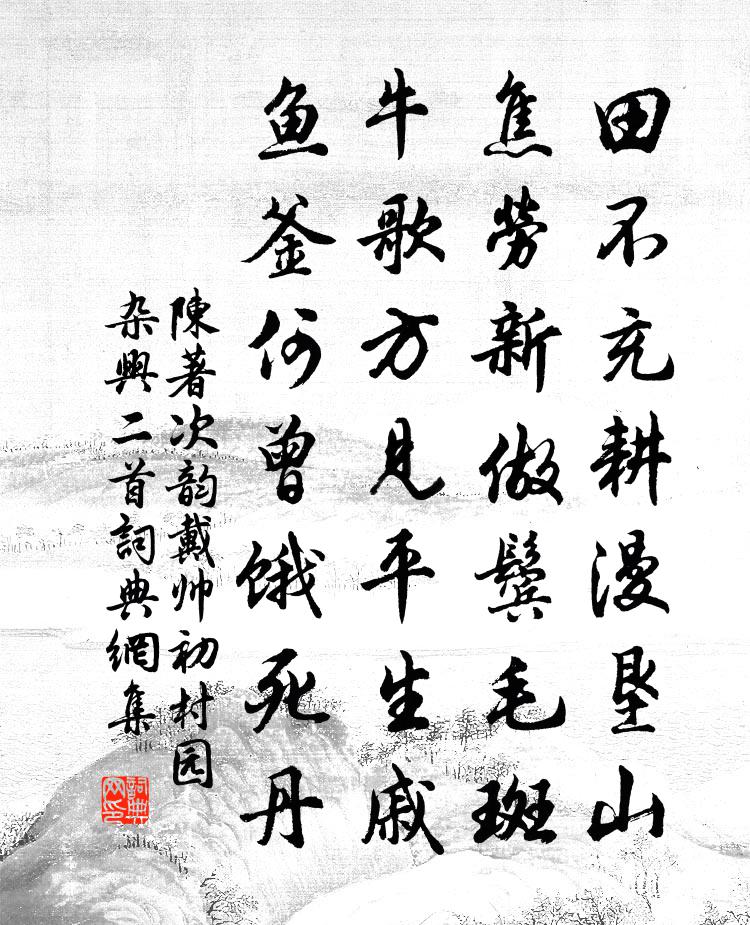 田不充耕漫垦山
焦劳新做鬓毛斑
牛歌方见平生戚
鱼釜何曾饿死丹
陳著次韵戴帅初村园
杂興二首詞典網集
詞典
网印